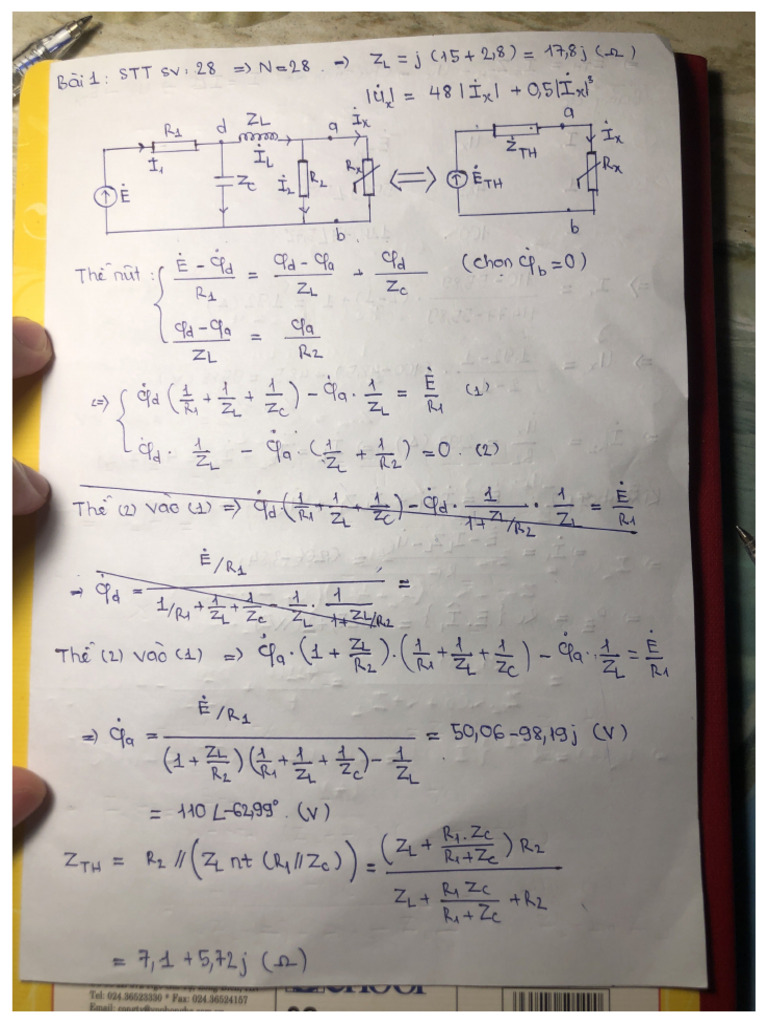 Bài 1: STT SV: 28 => N=28 . => Z_L = j (15 + 2,8) = 17,8j (Ω)
|U̇x| = 48 |İx| + 0,5|İx|³
R1 d Z_L a İx
İ1 İL
Ė Zc İ2 R2 Rx
b
<=>
Ż_TH a İx
Ė_TH Rx
b
Thế nút: { (Ė - φ̇d)/R1 = (φd - φa)/Z_L + φd/Zc (chọn φ̇b = 0)
(φd - φa)/Z_L = φa/R2
<=> { φ̇d (1/R1 + 1/Z_L + 1/Zc) - φ̇a · 1/Z_L = Ė/R1 (1)
φ̇d · 1/Z_L - φ̇a · (1/Z_L + 1/R2) = 0 . (2)
Thế (2) vào (1) => φ̇d (1/R1 + 1/Z_L + 1/Zc) - φ̇d · 1/(1+Z_L/R2) · 1/Z_L = Ė/R1
=> φ̇d = (Ė/R1)/(1/R1 + 1/Z_L + 1/Zc - 1/Z_L · 1/(1+Z_L/R2)) =
Thế (2) vào (1) => φ̇a · (1 + Z_L/R2) · (1/R1 + 1/Z_L + 1/Zc) - φ̇a · 1/Z_L = Ė/R1
=> φ̇a = (Ė/R1)/((1 + Z_L/R2)(1/R1 + 1/Z_L + 1/Zc) - 1/Z_L) = 50,06 - 98,19j (V)
= 110 ∠-62,99° . (V)
Z_TH = R2 // (Z_L nt (R1 // Zc)) = ((Z_L + R1.Zc/(R1+Zc)) R2)/(Z_L + R1 Zc/(R1+Zc) + R2)
= 7,1 + 5,72j (Ω)
Tel: 024.36523330 * Fax: 024.36524157